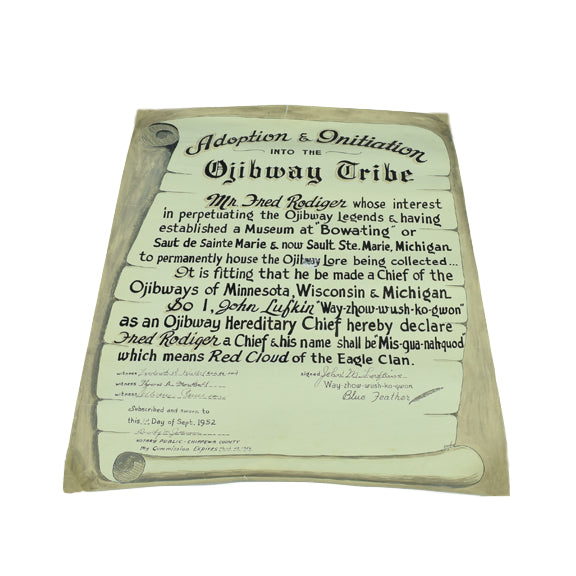 Adoption & Initiation
INTO THE
Ojibway Tribe
Mr. Fred Rodiger whose interest
in perpetuating the Ojibway Legends & having
established a Museum at "Bowating" or
Saut de Sainte Marie & now Sault Ste. Marie, Michigan
to permanently house the Ojibway Lore being collected...
It is fitting that he be made a Chief of the
Ojibways of Minnesota, Wisconsin & Michigan.
So I, John Lufkin "Way-zhow-wush-ko-gwon"
as an Ojibway Hereditary Chief hereby declare
Fred Rodiger a Chief & his name shall be "Mis-gua-nah-quod"
which means Red Cloud of the Eagle Clan.
witness
signed
witness
Way-zhow-wush-ko-gwon
witness
Blue Feather
Subscribed and sworn to
this Day of Sept. 1952
NOTARY PUBLIC-CHIPPEWA COUNTY
My Commission Expires